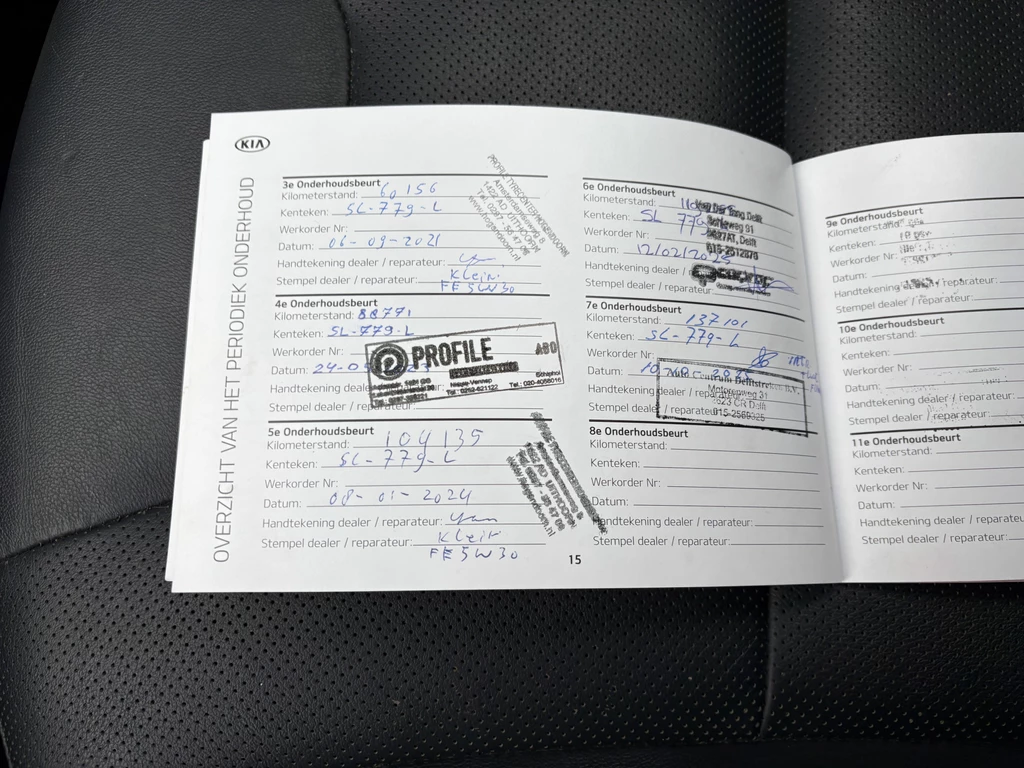 KIA
OVERZICHT VAN HET PERIODIEK ONDERHOUD
3e Onderhoudsbeurt
Kilometerstand: 60 156
Kenteken: SL-779-L
Werkorder Nr:
Datum: 06-09-2021
Handtekening dealer / reparateur:
Stempel dealer / reparateur: Klein
FE 5W30
1422 AD UITHOORN
4e Onderhoudsbeurt
Kilometerstand: 88771
Kenteken: SL-779-L
Werkorder Nr:
Datum: 24-0
Handtekening deale
Stempel dealer / reparateur:
PROFILE
Nieuw Vennep
Tel.: 0252-621122
Schiphol
Tel.: 020-4056016
5e Onderhoudsbeurt
Kilometerstand: 104135
Kenteken: SL-779-L
Werkorder Nr:
Datum: 08-01-2024
Handtekening dealer / reparateur:
Stempel dealer / reparateur: Klein
FE 5W30
6e Onderhoudsbeurt
Kilometerstand:
Kenteken: SL 779
Werkorder Nr:
Datum: 12/02/2025
Handtekening dealer / reparateur:
Stempel dealer / reparateur:
Schieweg 91
2627AT, Delft
015-2512870
7e Onderhoudsbeurt
Kilometerstand: 137101
Kenteken: SL-779-L
Werkorder Nr:
Datum: 10
Handtekening dealer / reparateur:
Stempel dealer / reparateur:
Motorenweg 31
2623 CR Delft
8e Onderhoudsbeurt
Kilometerstand:
Kenteken:
Werkorder Nr:
Datum:
Handtekening dealer / reparateur:
Stempel dealer / reparateur:
15
9e Onderhoudsbeurt
Kilometerstand:
Kenteken:
Werkorder Nr:
Datum:
Handtekening dealer / reparateur:
Stempel dealer / reparateur:
10e Onderhoudsbeurt
Kilometerstand:
Kenteken:
Werkorder Nr:
Datum:
Handtekening dealer / reparateur:
Stempel dealer / reparateur:
11e Onderhoudsbeurt
Kilometerstand:
Kenteken:
Werkorder Nr:
Datum:
Handtekening dealer / reparateu
Stempel dealer / reparateur: